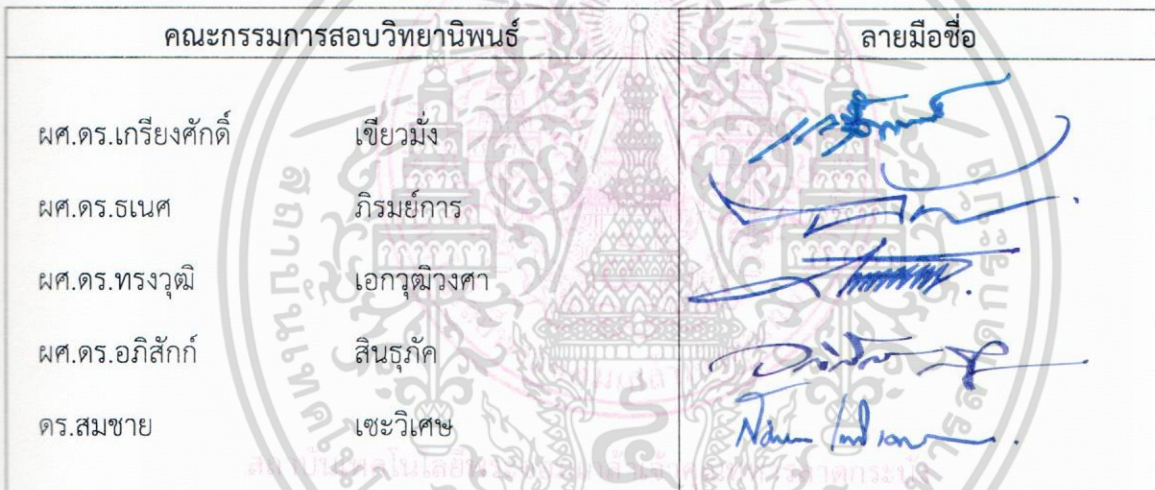 คณะกรรมการสอบวิทยานิพนธ์ ลายมือชื่อ
ผศ.ดร.เกรียงศักดิ์ เขียวมั่ง
ผศ.ดร.ธเนศ ภิรมย์การ
ผศ.ดร.ทรงวุฒิ เอกวุฒิวงศา
ผศ.ดร.อภิสักก์ สินธุภัค
ดร.สมชาย เซะวิเศษ